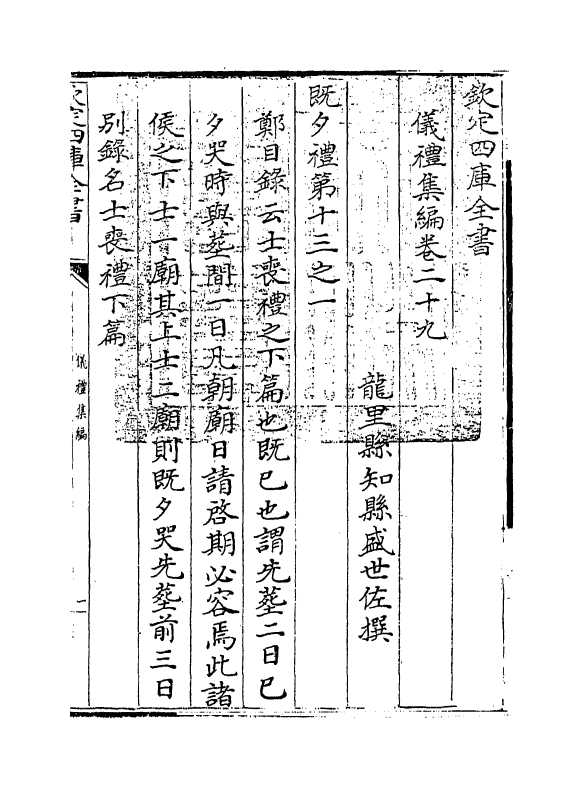 欽定四庫全書
儀禮集編卷二十九
龍里縣知縣盛世佐撰
既夕禮第十三之一
鄭目錄云士喪禮之下篇也既已也謂先塟二日已
夕哭時與塟間一日凡朝廟日請啓期必容焉此諸
侯之下士一廟其上士二廟則既夕哭先塟前三日
別錄名士喪禮下篇
欽定四庫全書
儀禮集編
一